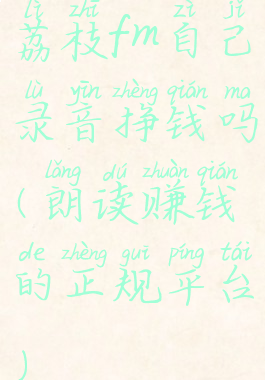 lì zhī zì jǐ
荔枝fm自己
lù yīn zhèng qián ma
录音挣钱吗
lǎng dú zhuàn qián
(朗读赚钱
de zhèng guī píng tái
的正规平台
)